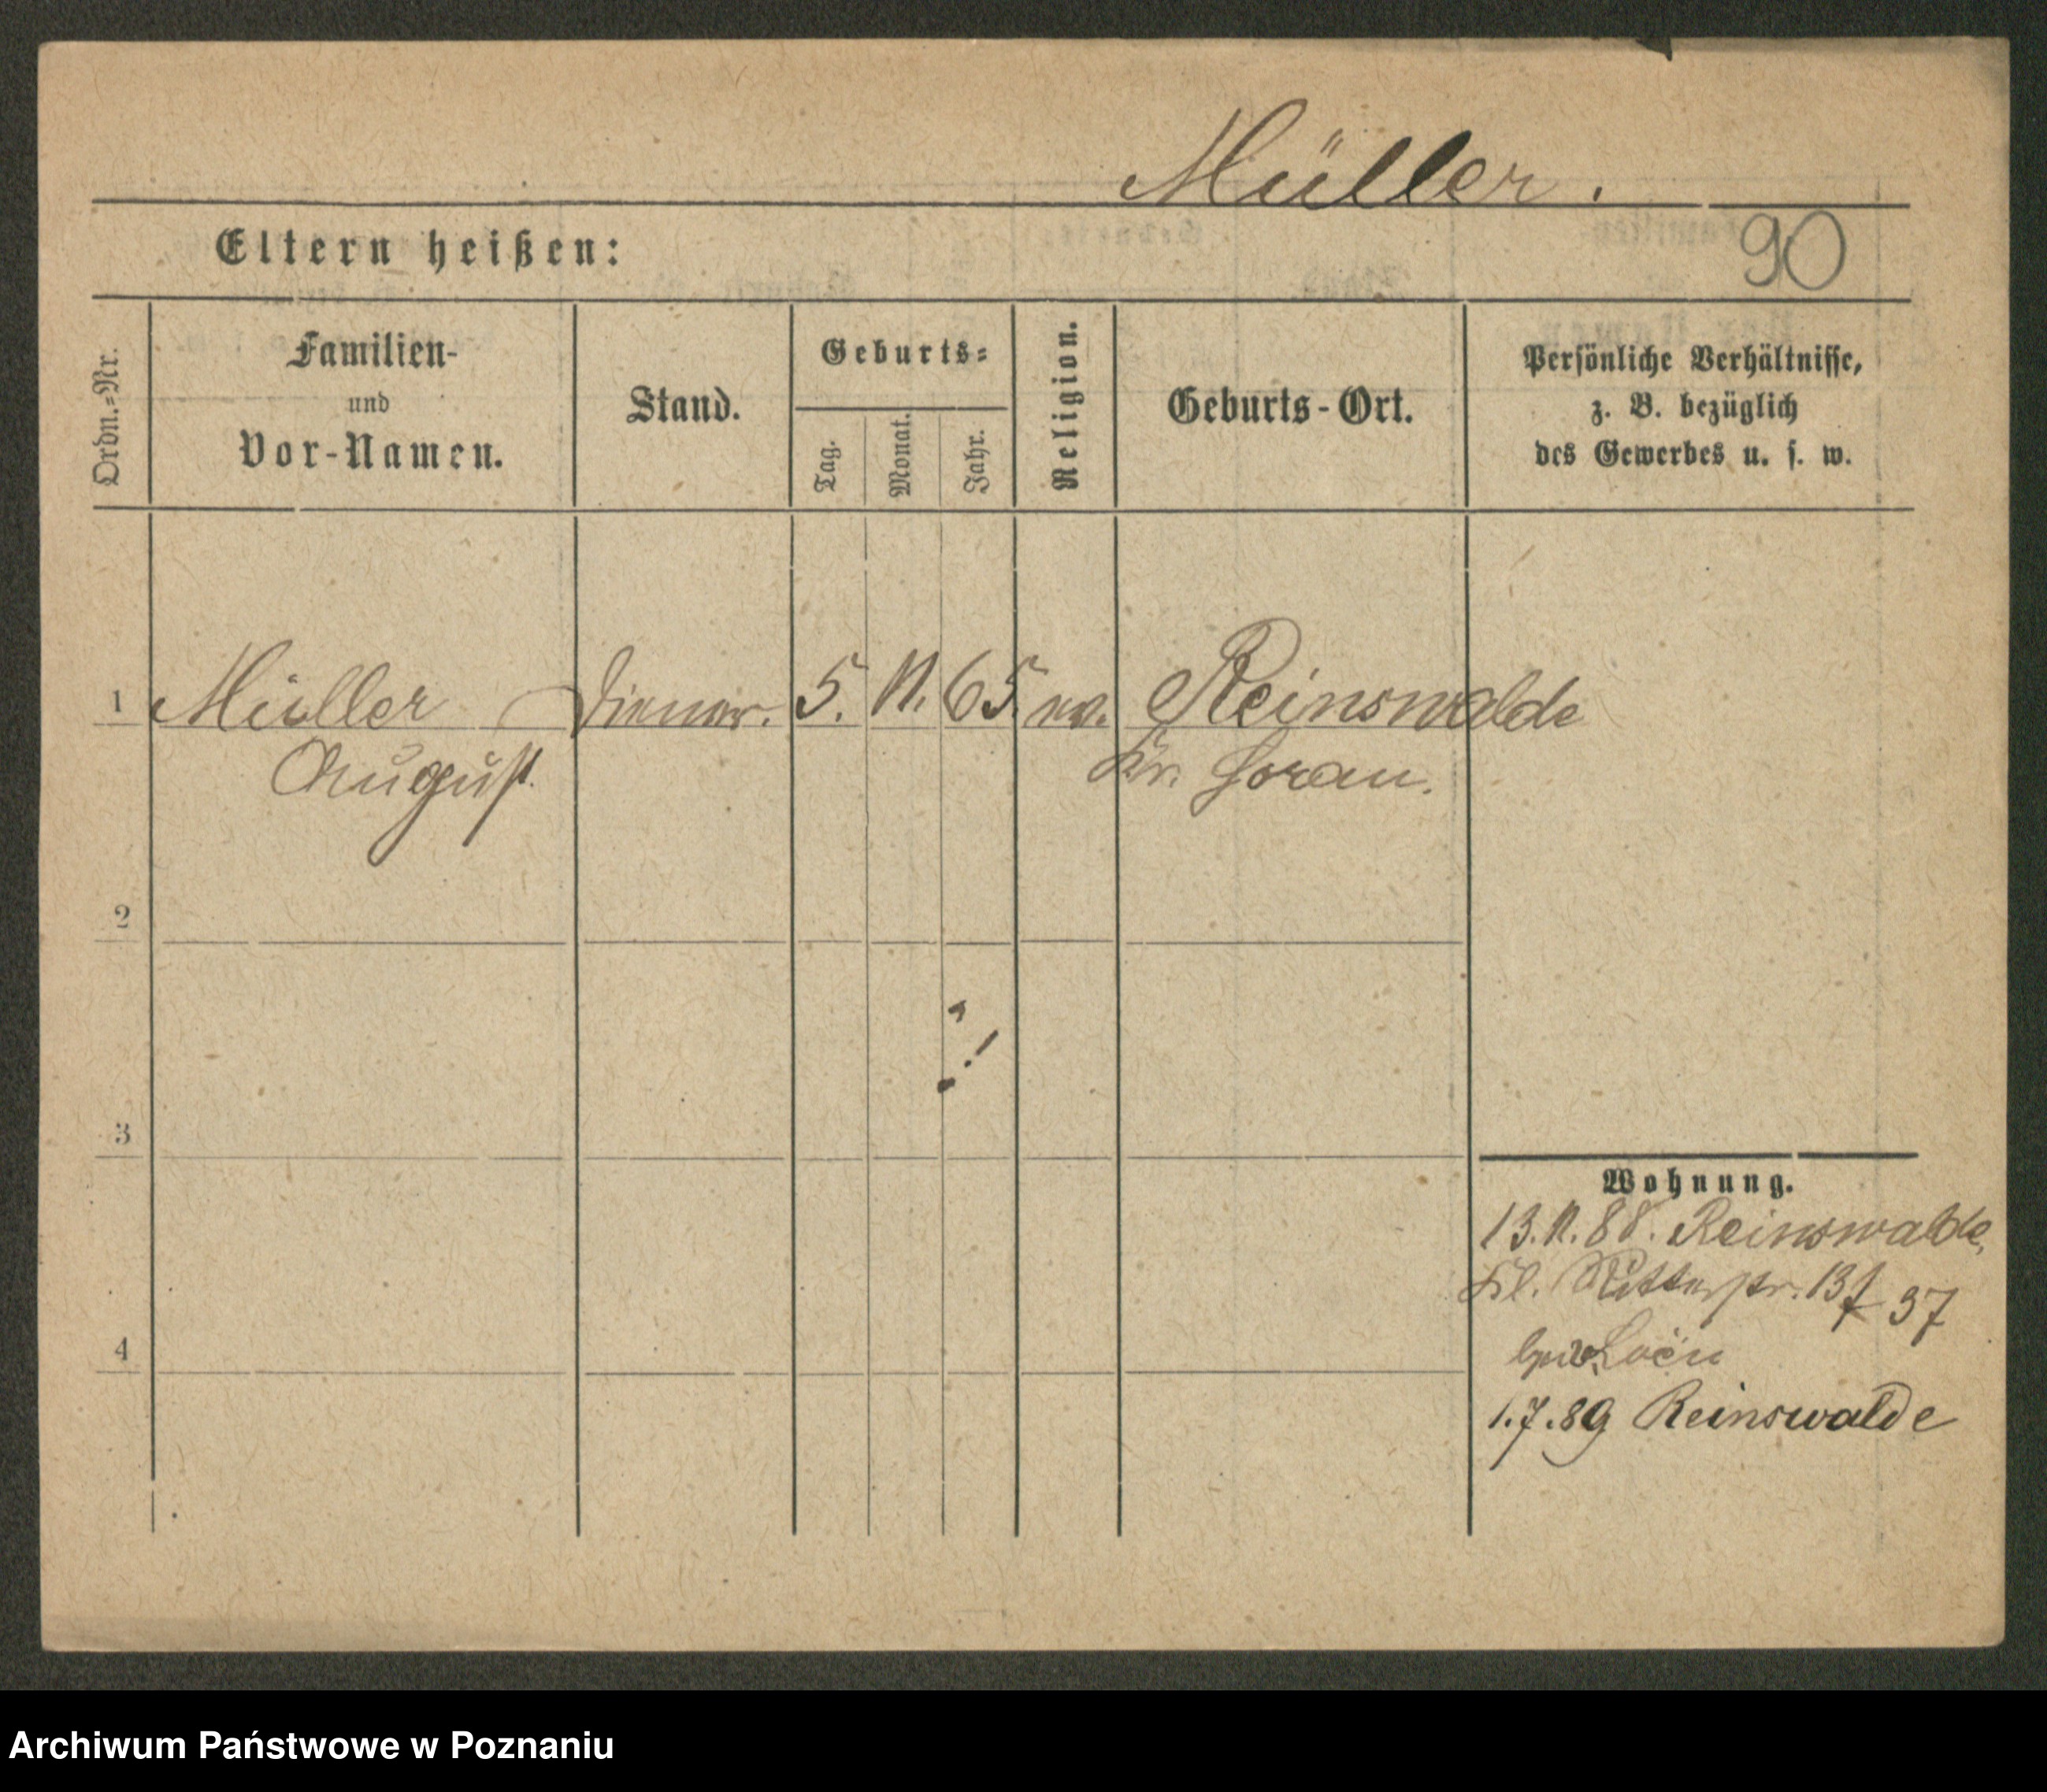 Müller.
90
Eltern heißen:
Ordn.=Nr.
Familien-
und
Vor-Namen.
Stand.
Geburts=
Tag.
Monat.
Jahr.
Religion.
Geburts-Ort.
Persönliche Verhältnisse,
z. B. bezüglich
des Gewerbes u. s. w.
1 Müller Diener. 5. 11. 65. ev. Reinswalde
August. Kr. Sorau.
2
3
4
Wohnung.
13. 11. 88. Reinswalde,
Kl. Ritterstr. 37
Loën
1.7.89 Reinswalde
Archiwum Państwowe w Poznaniu